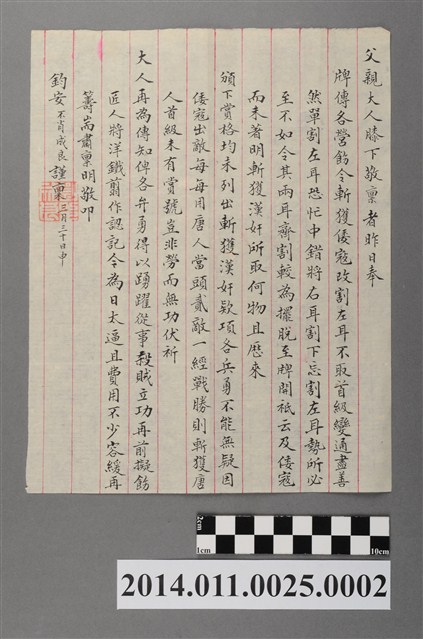 父親大人膝下敬稟者昨日奉
牌傳各營飭令斬獲倭寇改割左耳不取首級變通盡善
然單割左耳恐忙中錯將右耳割下忘割左耳勢所必
至不如令其兩耳齊割較為擺脫至牌開祗云及倭寇
而未著明斬獲漢奸所取何物且歷來
頒下賞格均未列出斬獲漢奸欵項各兵勇不能無疑因
倭寇出敵每每用唐人當頭貳敵一經戰勝則斬獲唐
人首級未有賞號豈非勞而無功伏祈
大人再為傳知俾各弁勇得以踴躍從事殺賊立功再前擬飭
匠人將洋鐵剪作認記今為日太逼且費用不少容緩再
籌耑肅稟明敬叩
鈞安 不肖成良 謹稟 三月三十日申
2cm
1cm
10cm
2014.011.0025.0002